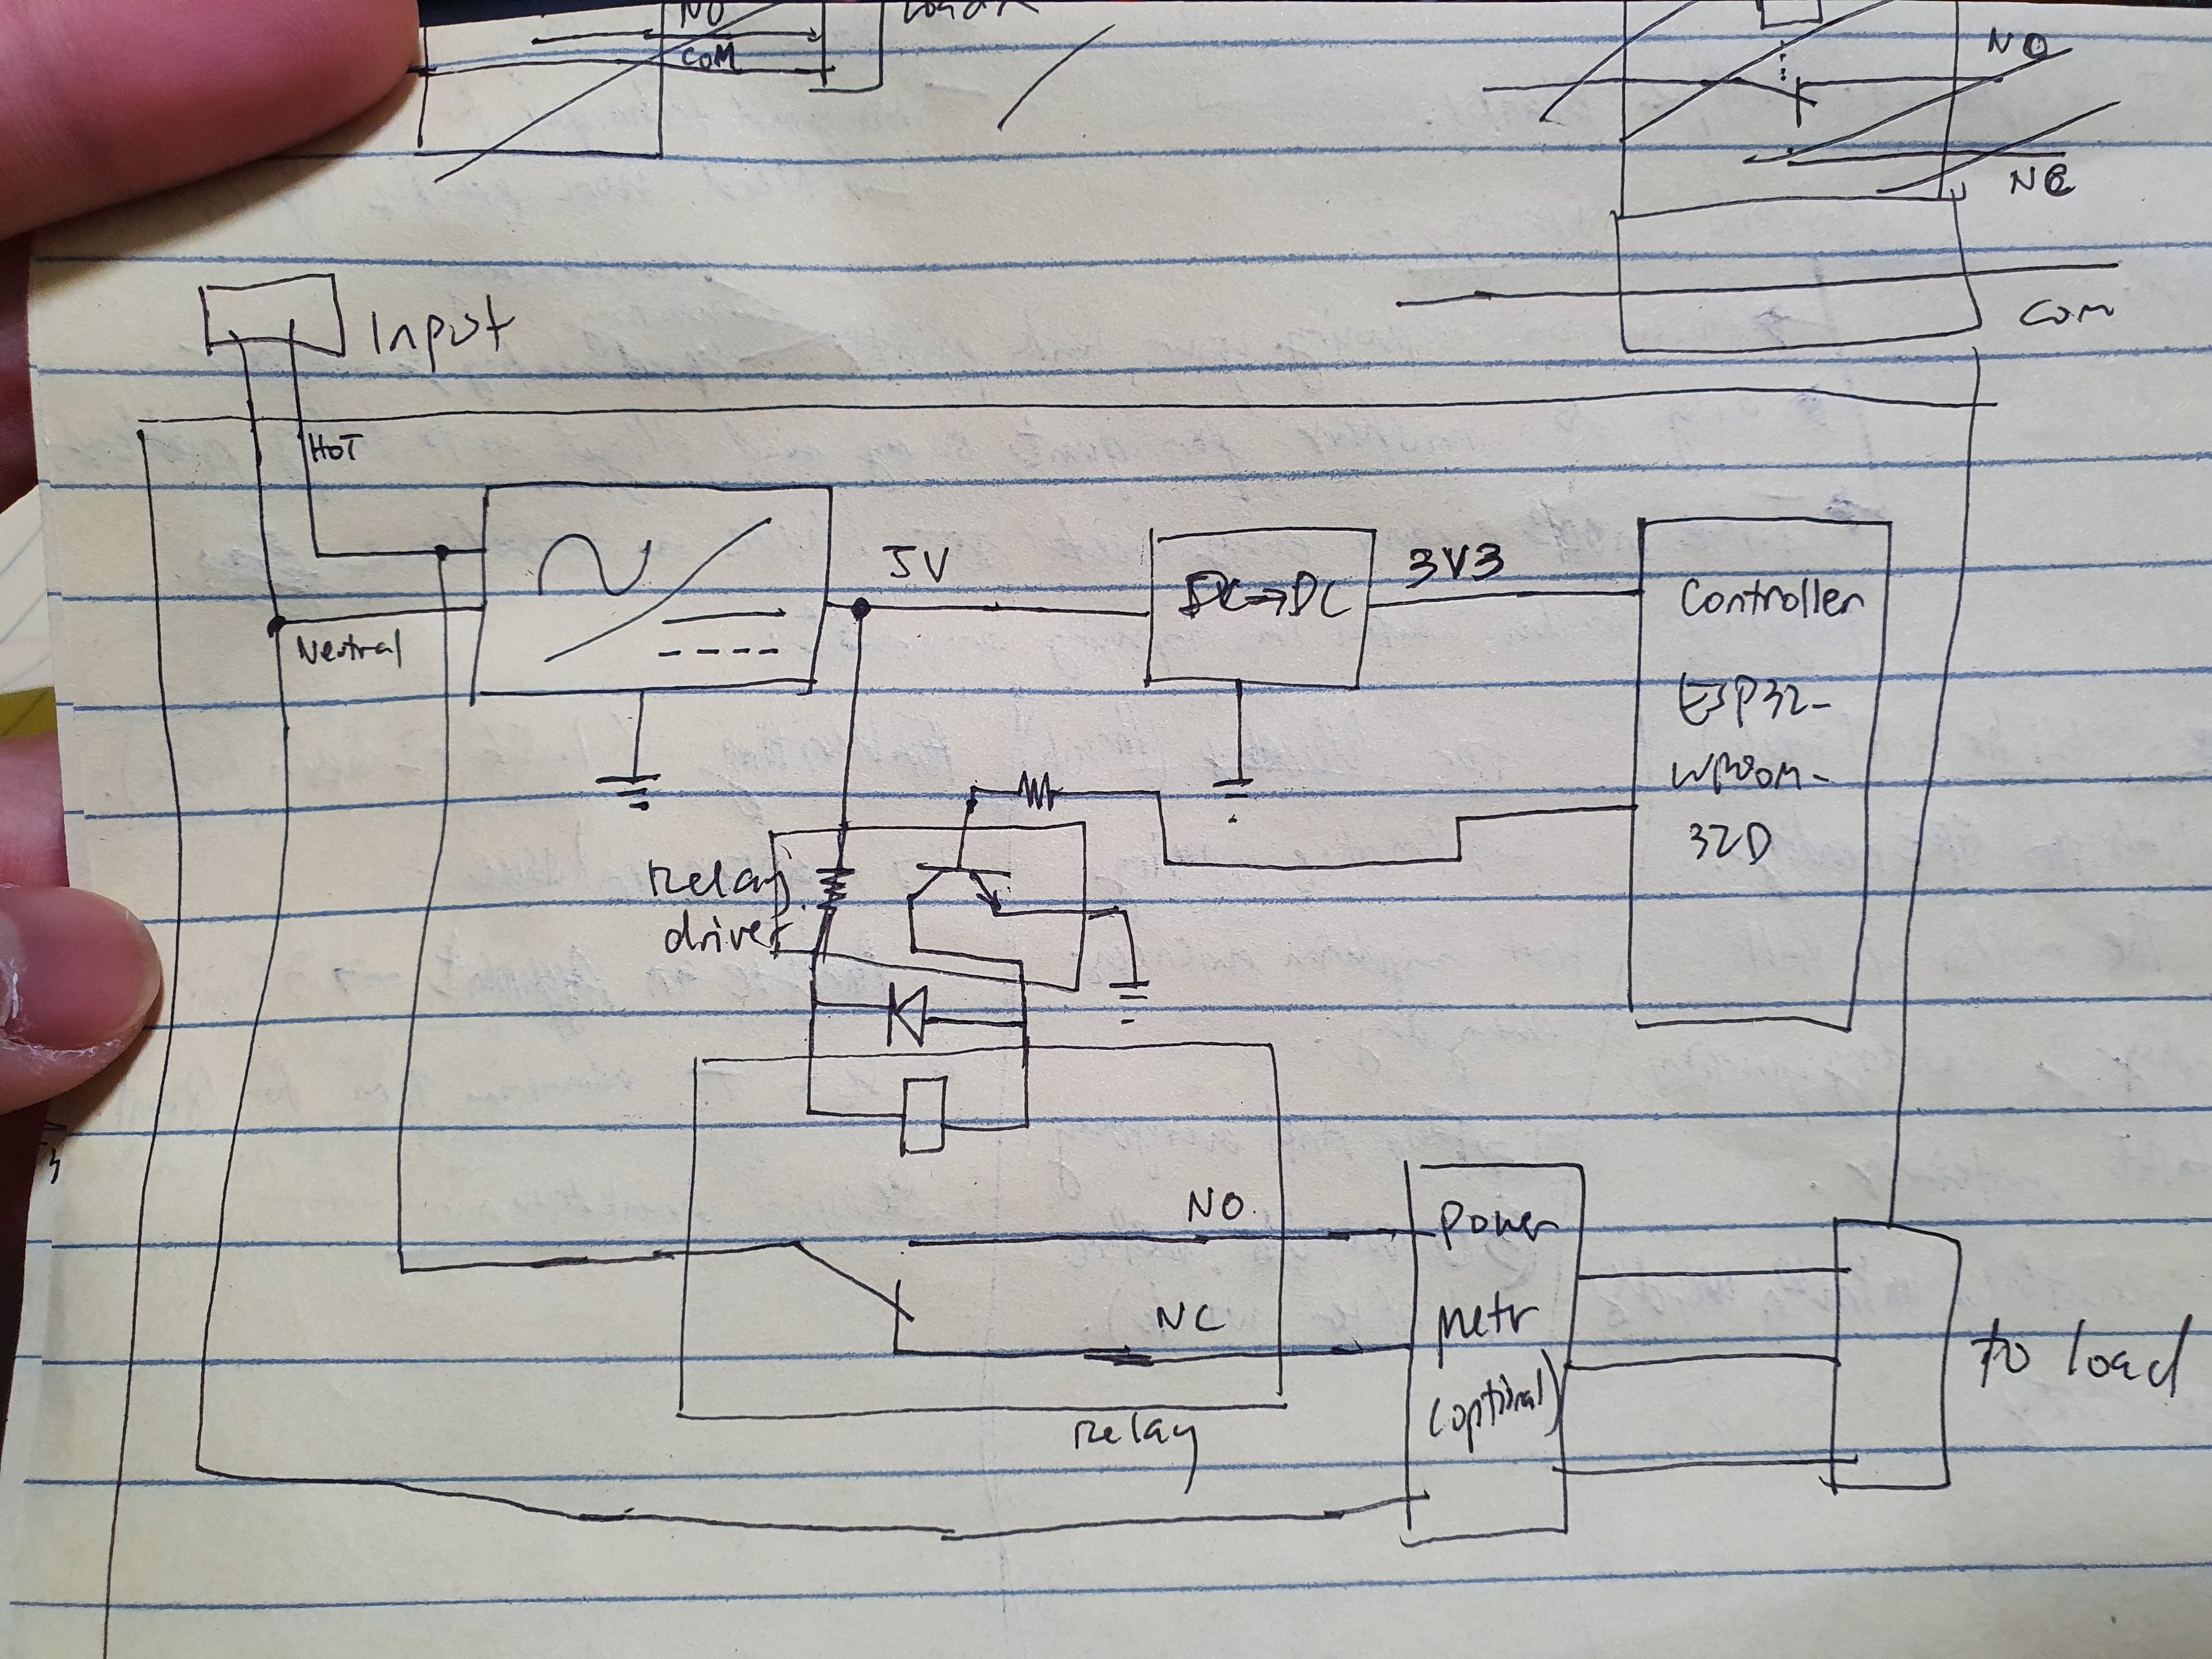 NO
COM
NO
NC
COM
Input
HOT
Neutral
5V
DC→DC
3V3
Controller
ESP32-
WROOM-
32D
Relay
driver
NO
NC
Relay
Power
Metr
(optional)
To load